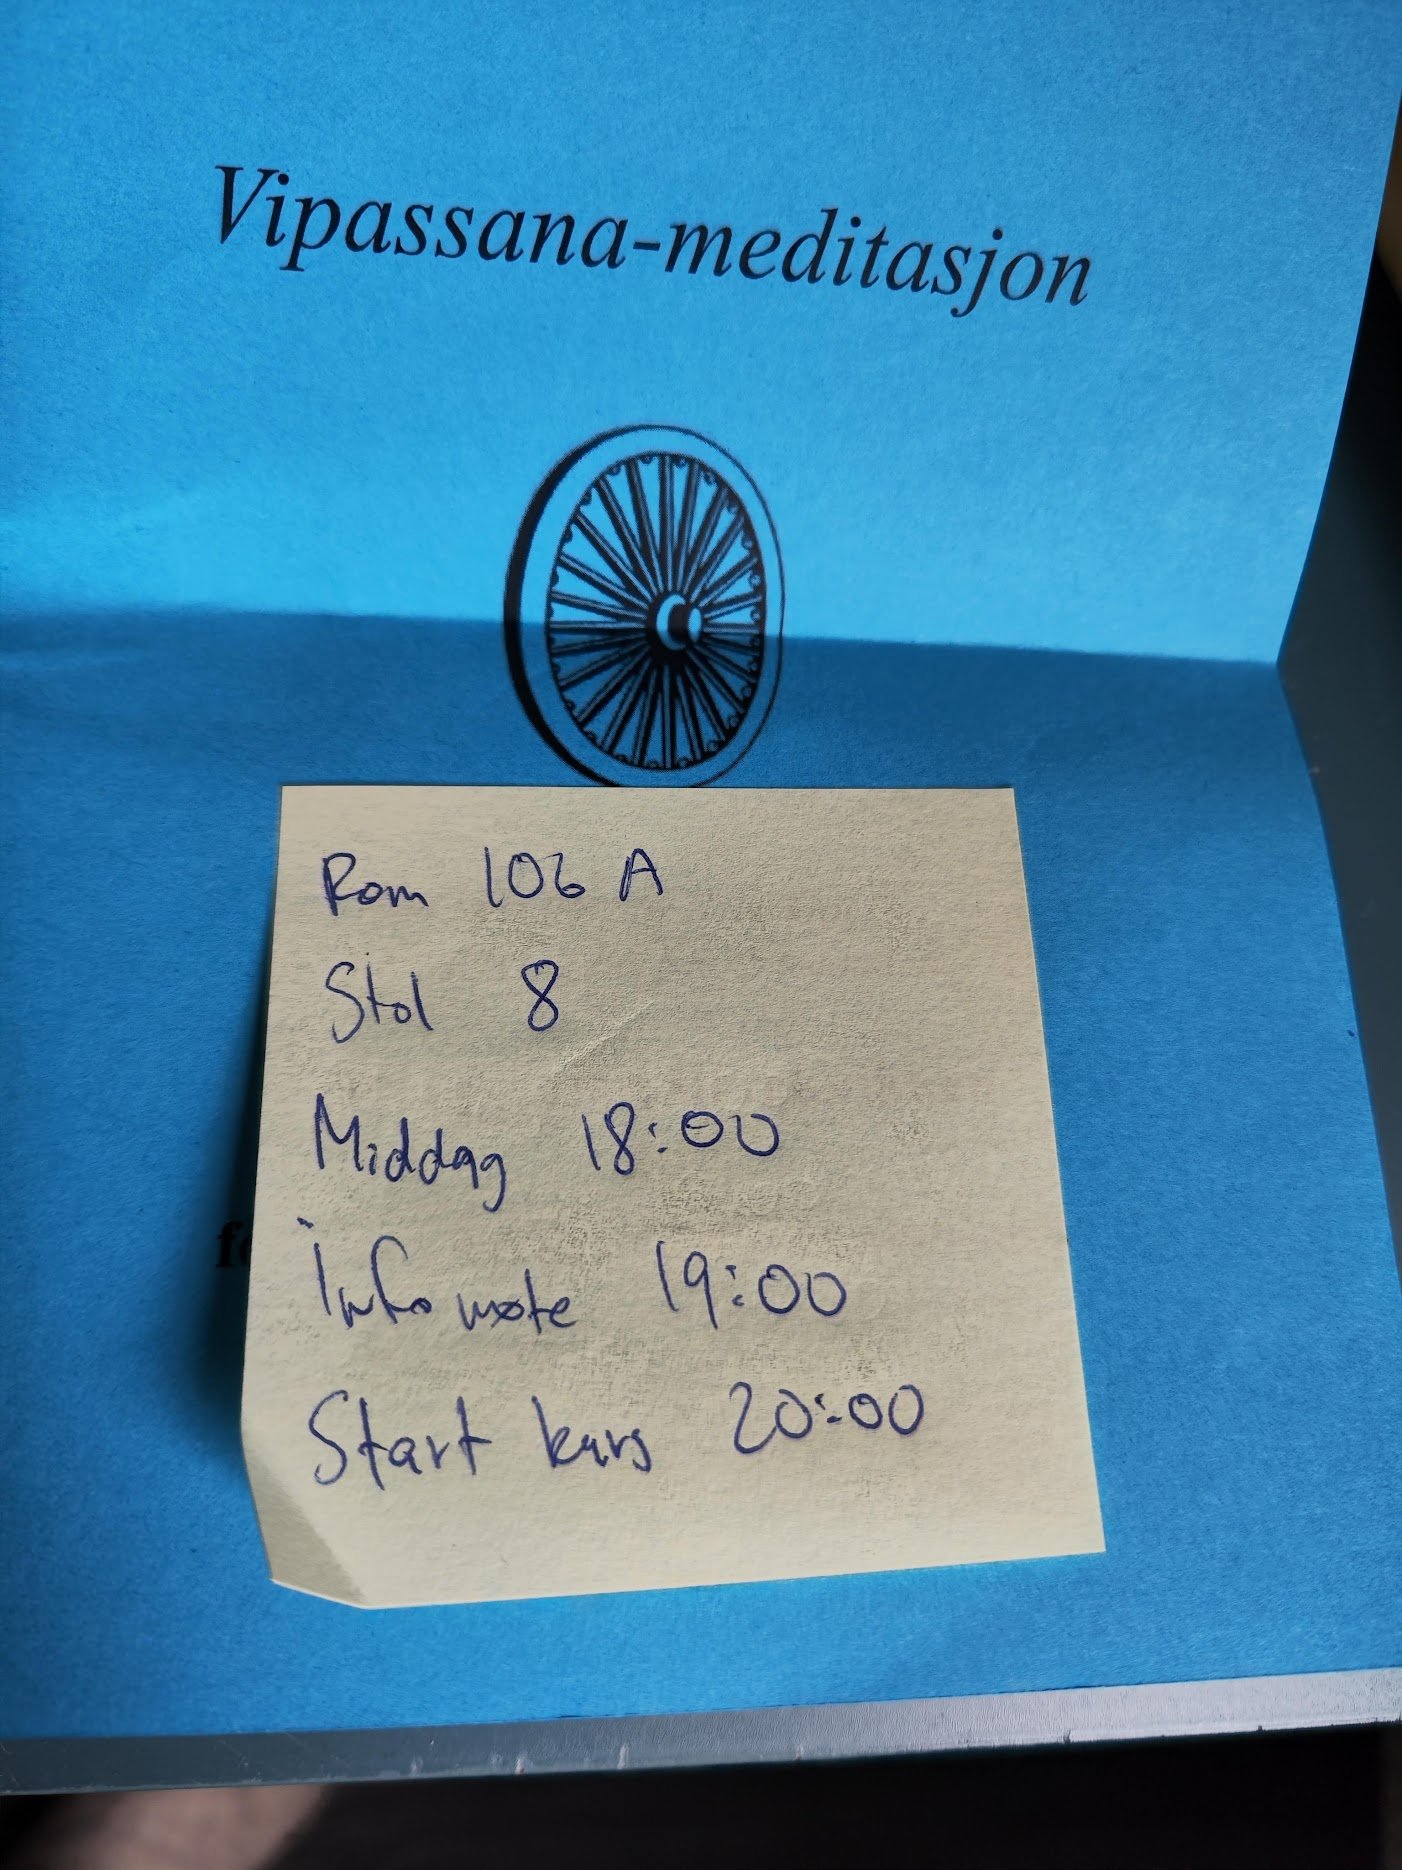 Vipassana-meditasjon
Rom 106 A
Stol 8
Middag 18:00
Info møte 19:00
Start kurs 20:00